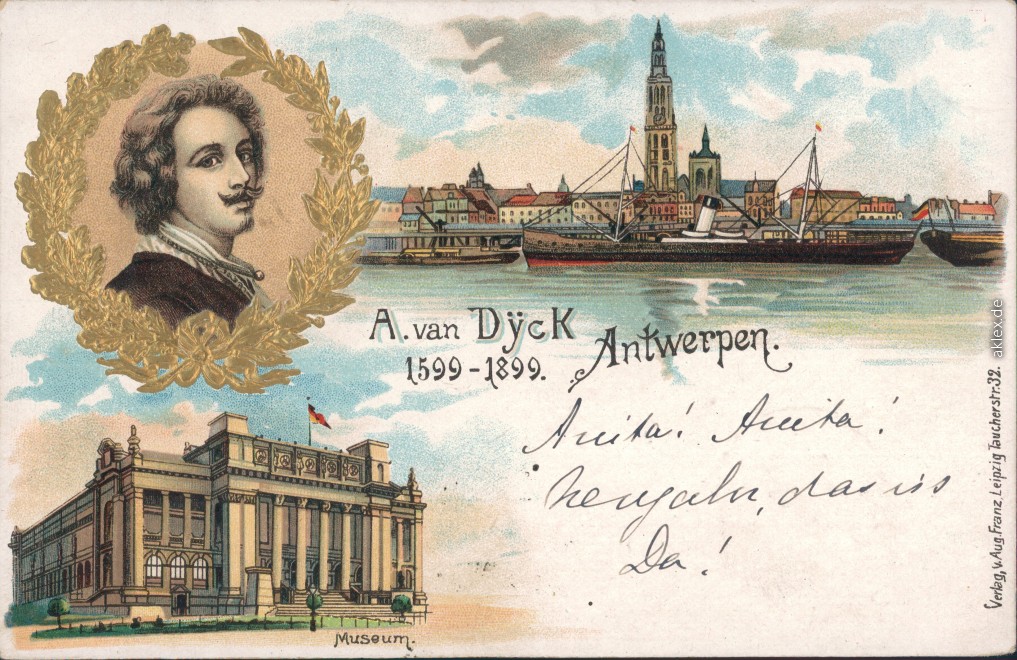 A. van Dÿck
1599-1899.
Antwerpen.
Anita! Anita!
das is
Da!
Museum.
Verlag, v. Aug. Franz. Leipzig Taucherstr. 32.
aklex.de